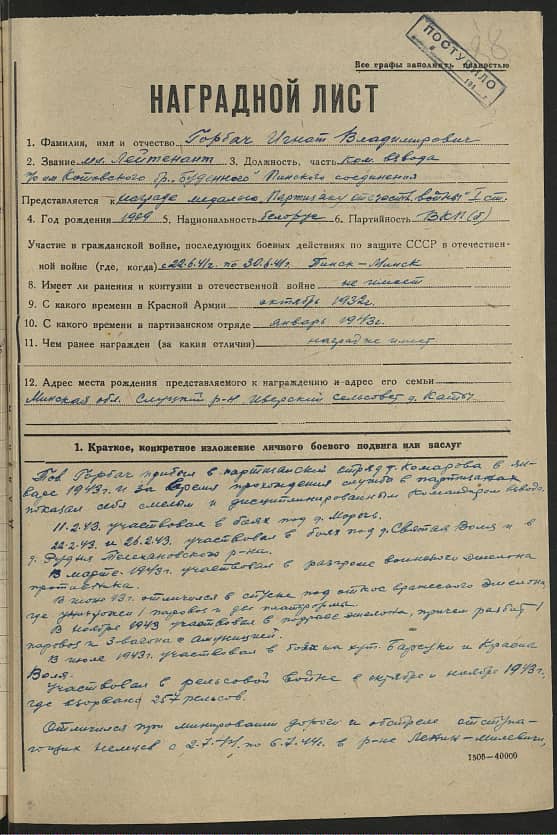 28
ПОСТУПИЛО
Все графы заполнять полностью
НАГРАДНОЙ ЛИСТ
1. Фамилия, имя и отчество Горбач Игнат Владимирович
2. Звание мл. Лейтенант 3. Должность, часть ком. взвода
им Котовского Бр. "Буденного" Пинского соединения
Представляется к награде медалью "Партизану отечеств. войны" I ст.
4. Год рождения 1909 5. Национальность белорус 6. Партийность ВКП(б)
Участие в гражданской войне, последующих боевых действиях по защите СССР в отечествен-
ной войне (где, когда) с 22.6.41г. по 30.6.41г. Пинск-Минск
8. Имеет ли ранения и контузии в отечественной войне не имеет
9. С какого времени в Красной Армии октябрь 1932г.
10. С какого времени в партизанском отряде январь 1943г.
11. Чем ранее награжден (за какия отличия) наград не имеет
12. Адрес места рождения представляемого к награждению и адрес его семьи
Минская обл. Слуцкий р-н сельсовет д.
1. Краткое, конкретное изложение личного боевого подвига или заслуг
Тов Горбач прибыл в партизанский отряд т. Комарова в ян-
варе 1943г. и за время прохождения службы в партизанах
показал себя смелым и дисциплинированным командиром взвода.
11.2.43. участвовал в боях под д. Морочь.
22.2.43. и 26.2.43. участвовал в боях под д. Святая Воля и в
д. Рудня Телехановского р-на.
В марте 1943г. участвовал в разгроме воинского эшелона
противника.
В июне 43г. отличился в спуске под откос вражеского эшелона,
где уничтожен 1 паровоз и две платформы.
В ноябре 1943 участвовал в подрыве эшелона, причем разбит 1
паровоз и 3 вагона с амуницией.
В июле 1943г. участвовал в боях на хут. Барсуки и Красная
Воля.
Участвовал в рельсовой войне в октябре и ноябре 1943г.
где взорвано 257 рельсов.
Отличился при минировании дороги и обстреле отступа-
ющих немцев с 2.7.44. по 6.7.44г. в р-не Ленин-Милевичи,
1505—40000